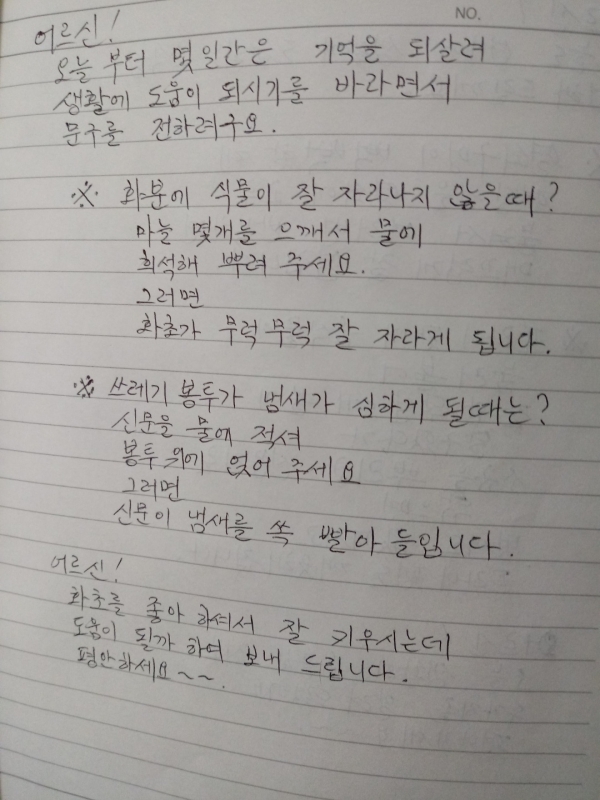 NO.
어르신!
오늘 부터 몇일간은 기억을 되살려
생활에 도움이 되시기를 바라면서
문구를 전하려구요.
※ 화분에 식물이 잘 자라나지 않을때?
마늘 몇개를 으깨서 물에
희석해 뿌려 주세요.
그러면
화초가 무럭무럭 잘 자라게 됩니다.
※ 쓰레기 봉투가 냄새가 심하게 될때는?
신문을 물에 적셔
봉투 위에 얹어 주세요
그러면
신문이 냄새를 쏙 빨아 들입니다.
어르신!
화초를 좋아 하셔서 잘 키우시는데
도움이 될까 하여 보내 드립니다.
평안하세요~~.